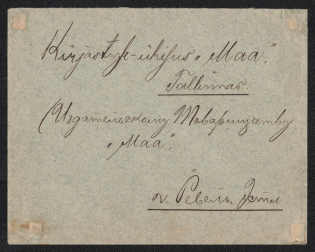 Kirjastuse-ühisus „Maa".
Tallinnas.
Издательскому Товариществу
„Маа".
г. Ревель.